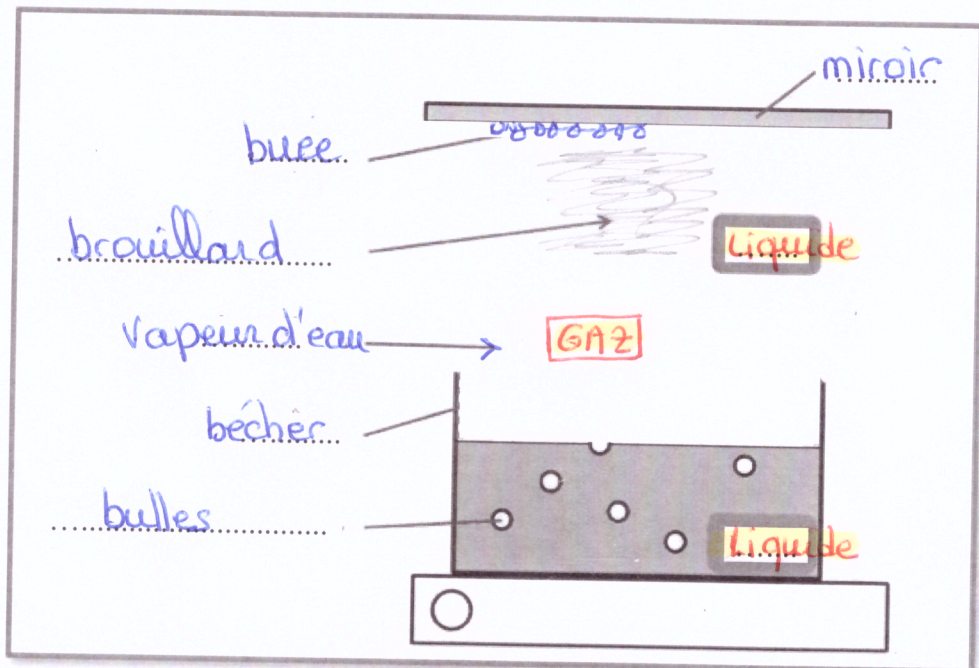 miroir
buée
brouillard
Liquide
vapeur d'eau
GAZ
bécher
bulles
Liquide